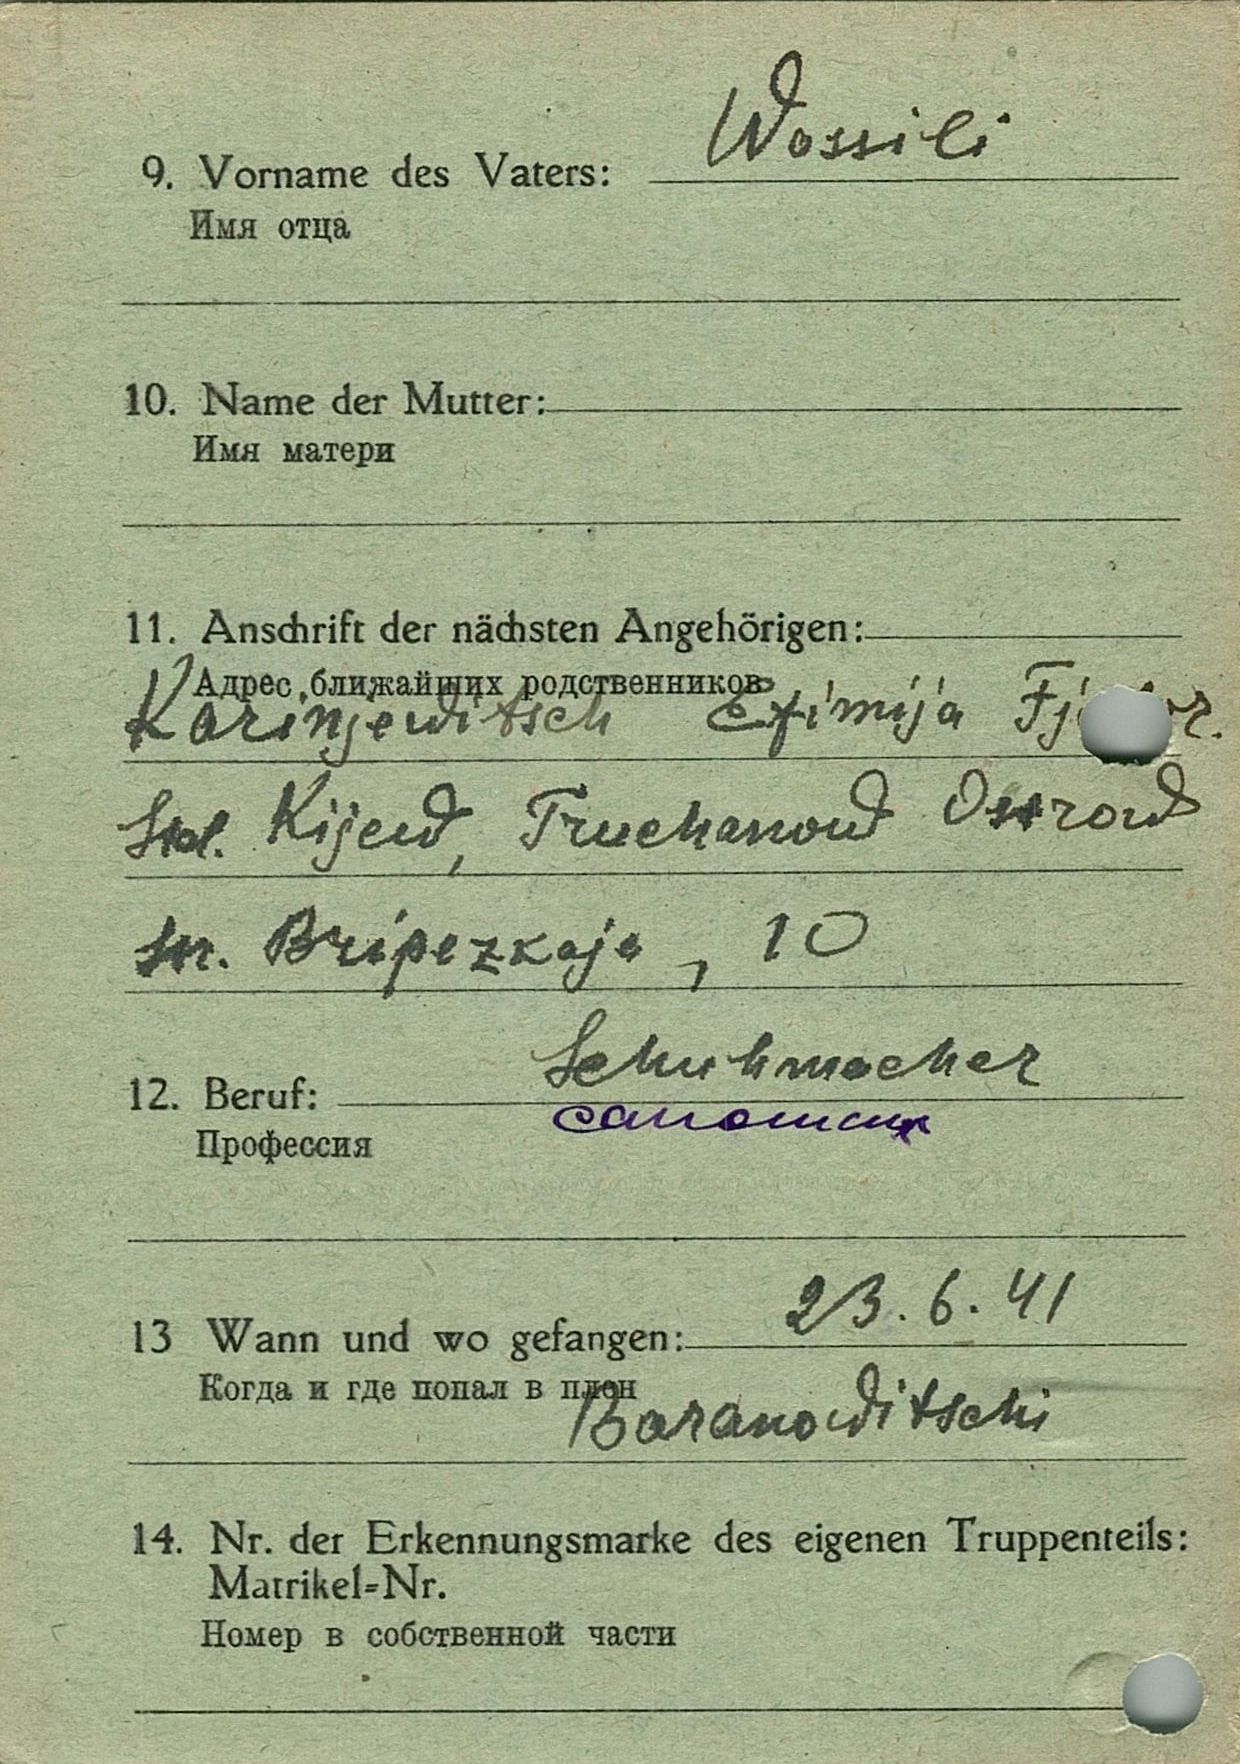 9. Vorname des Vaters: Wassili
Имя отца
10. Name der Mutter:
Имя матери
11. Anschrift der nächsten Angehörigen:
Адрес ближайших родственников
Karinjewitsch Efimija
Kijew, Truchanow Ostrow
str. Pripezkaja, 10
12. Beruf: Schuhmacher
сапожник
Профессия
13 Wann und wo gefangen: 23.6.41
Когда и где попал в плен
Baranowitschi
14. Nr. der Erkennungsmarke des eigenen Truppenteils:
Matrikel-Nr.
Номер в собственной части